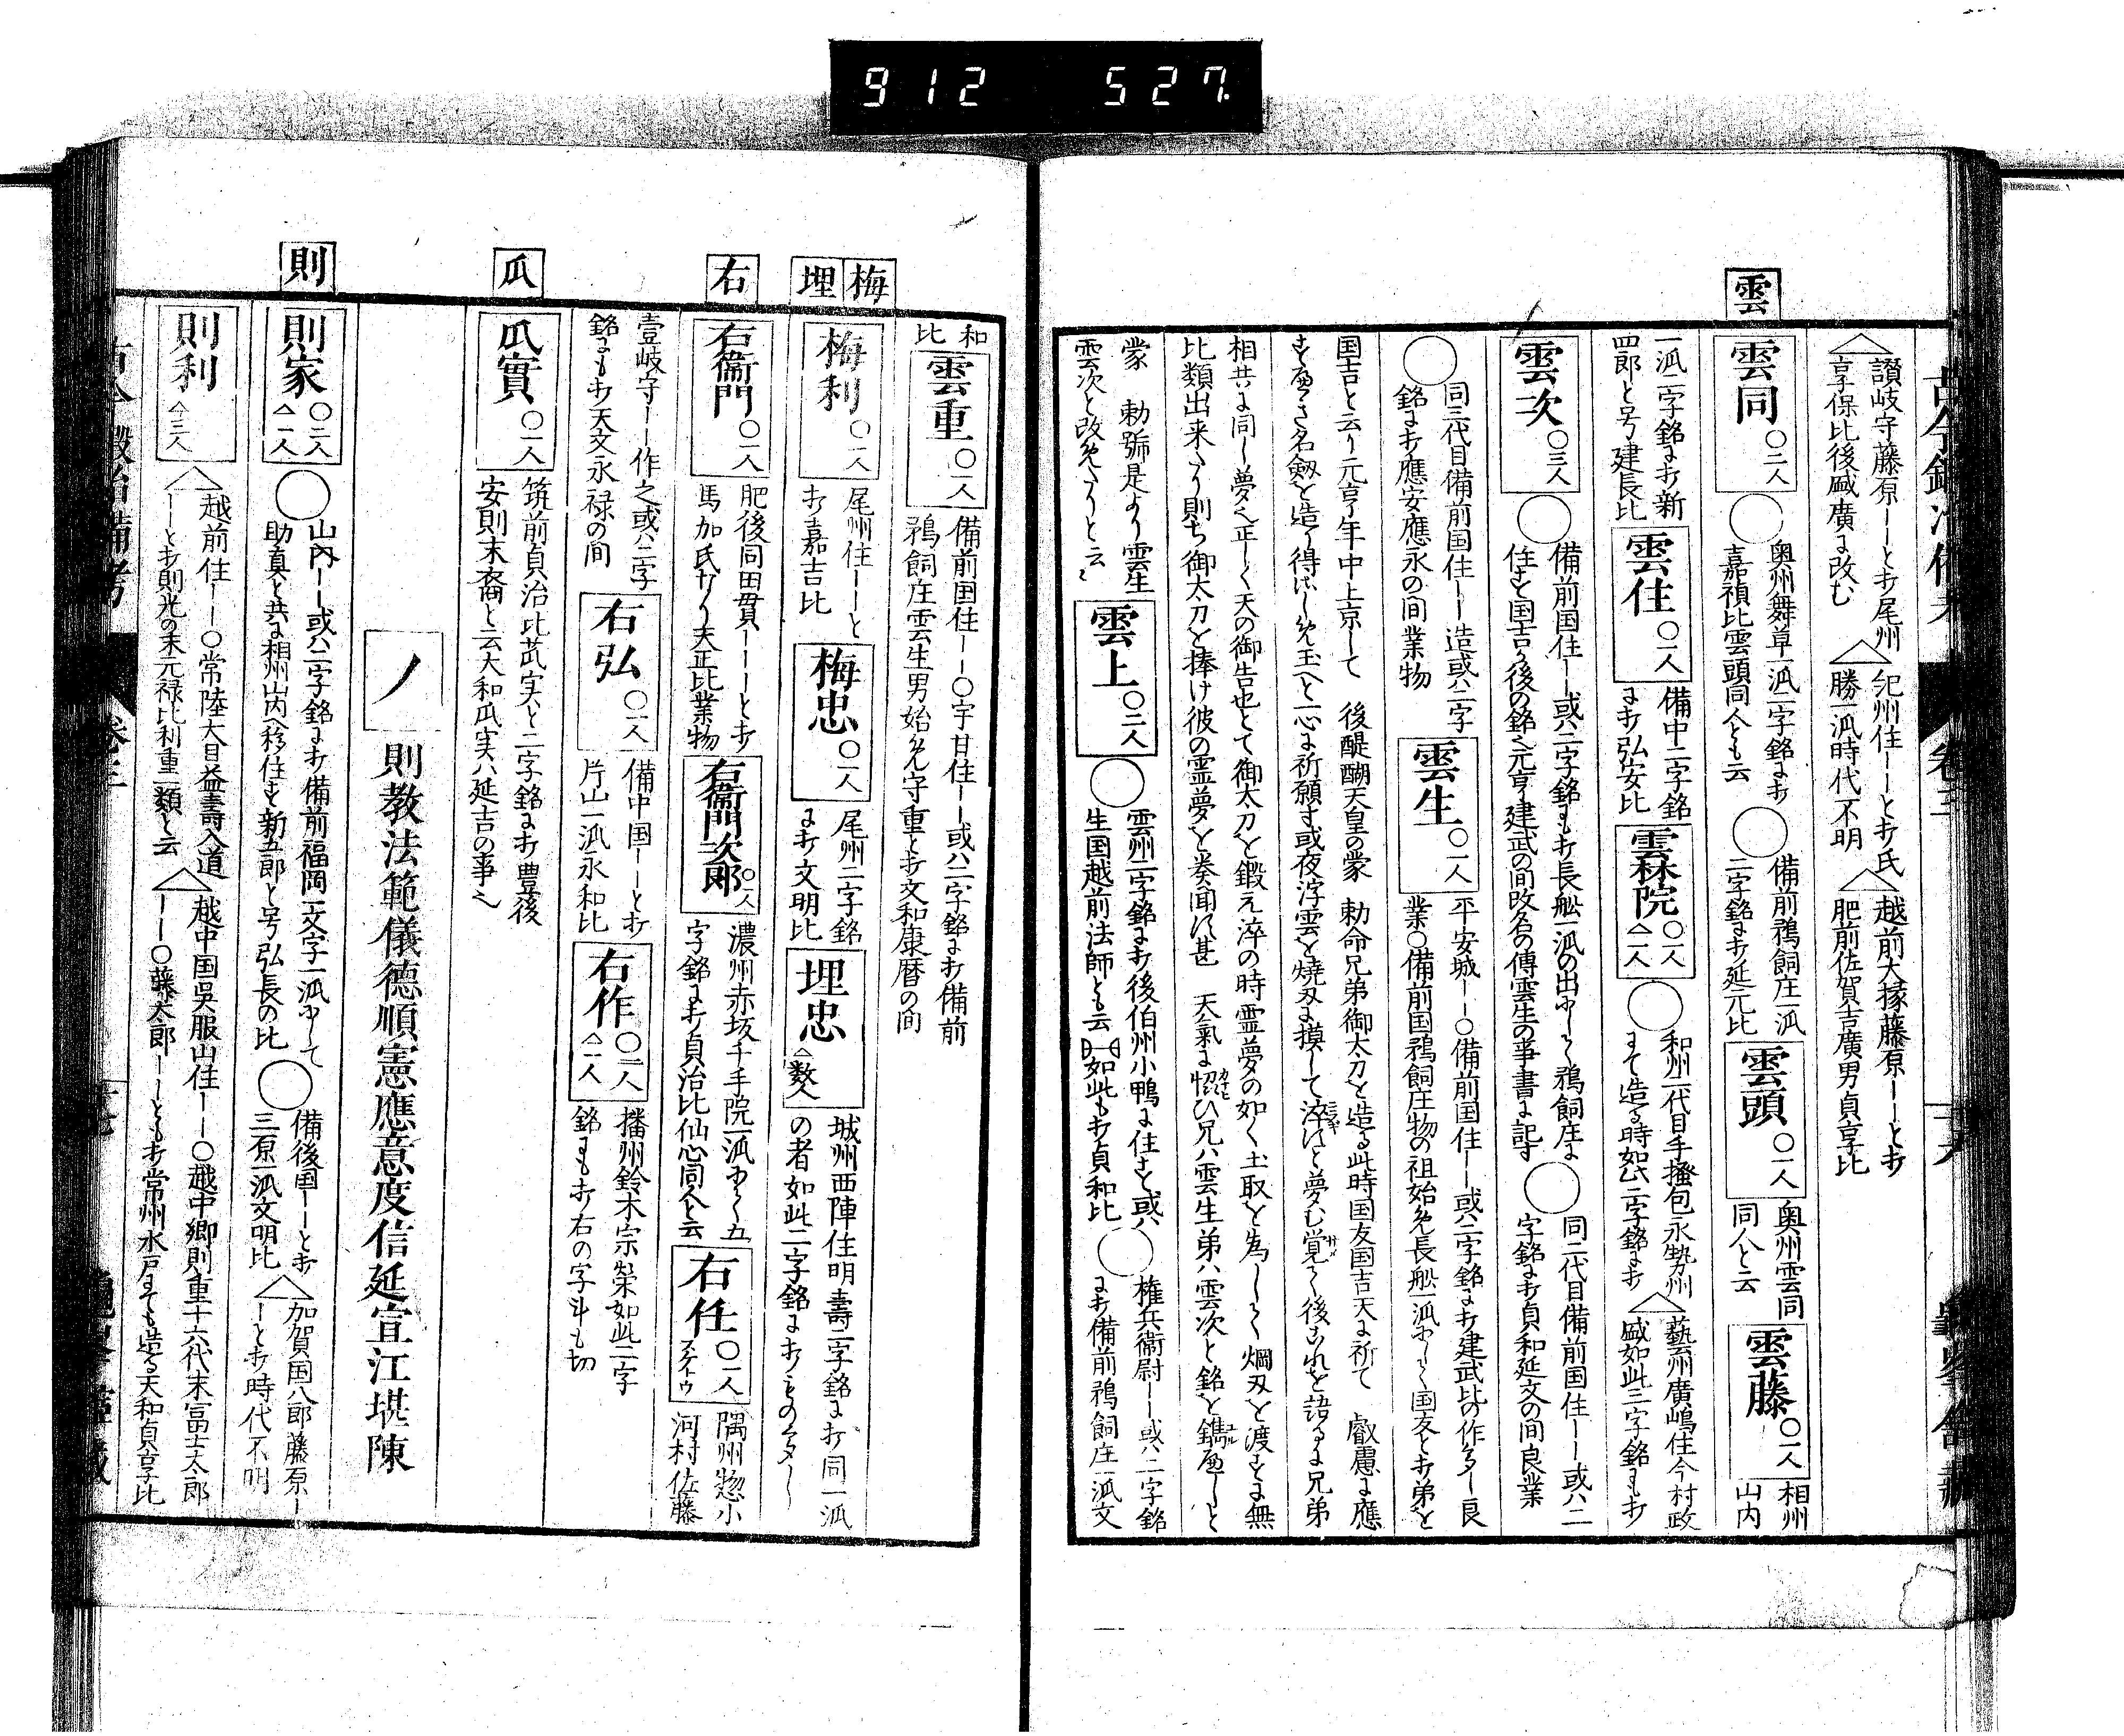 912 527.
雲
讃岐守藤原ーーと打尾州
享保比後盛廣に改む
紀州住ーーと打氏
勝一派時代不明
越前大掾藤原ーーと打
肥前佐賀吉廣男貞享比
雲同 〇二人
奥州舞草一派二字銘に打
嘉禎比雲頭同人とも云
備前鵜飼庄一派
二字銘に打延元比
雲頭 〇一人
奥州雲同
同人と云
雲藤 〇一人
相州
山内
一派二字銘に打新
四郎と号建長比
雲住 〇一人
備中二字銘
に打弘安比
雲林院 〇一人 △一人
和州二代目手掻包永勢州
にて造る時如此二字銘に打
藝州廣嶋住今村政
盛如此三字銘にも打
雲次 〇三人
備前国住ーー或ハ二字銘にも打長舩一派の出にして鵜飼庄に
住す国吉う後の銘也元亨建武の間改名の傳雲生の事書に記す
同二代目備前国住ーー或ハ二
字銘に打貞和延文の間良業
同三代目備前国住ーー造或ハ二字
銘に打應安應永の間業物
雲生 〇一人
平安城ーー〇備前国住ーー或ハ二字銘に打建武比の作多し良
業〇備前国鵜飼庄物の祖始め長舩一派にして国友と打弟を
国吉と云り元亨年中上京して 後醍醐天皇の蒙 勅命兄弟御太刀を造る此時国友国吉天に祈て 叡慮に應
すへき名剱を造り得させ玉へと一心に祈願す或夜浮雲を焼刄に摸して淬すと夢む覚て後これを語るに兄弟
相共に同し夢也正しく天の御告也とて御太刀を鍛え淬の時霊夢の如く土取を為して焖刄を渡すに無
比類出来たり則ち御太刀を捧け彼の霊夢を奏聞す甚 天氣に惬ひ兄ハ雲生弟ハ雲次と銘を鐫へしと
蒙 勅號是より雲生
雲次と改めたりと云々
雲上 〇二人
雲州二字銘に打後伯州小鴨に住す或ハ
生国越前法師とも云 如此も打貞和比
権兵衞尉ーー或ハ二字銘
に打備前鵜飼庄一派文
和
比
雲重 〇一人
備前国住ーー〇宇甘住ーー或ハ二字銘に打備前
鵜飼庄雲生男始め守重と打文和康暦の間
梅
埋
梅利 〇一人
尾州住ーーと
打嘉吉比
梅忠 〇一人
尾州二字銘
に打文明比
埋忠 △数人
城州西陣住明壽二字銘に打同一派
の者如此二字銘に打ものも多し
右
右衞門 〇一人
肥後同田貫ーーーと打
馬加氏打り天正比業物
右衞門次郎 〇一人
濃州赤坂千手院一派にして五
字銘に打貞治比仙心同人と云
右任 〇一人 スケトウ
隅州惣小
河村佐藤
壹岐守ーー作之或ハ二字
銘にも打天文永禄の間
右弘 〇一人
備中国ーーと打
片山一派永和比
右作 〇二人 △一人
播州鈴木宗榮如此二字
銘にも打右の字斗も切
瓜
瓜實 〇一人
筑前貞治比苽実と二字銘に打豊後
安則末裔と云大和瓜実ハ延吉の事也
ノ
則教法範儀德順憲應意度信延宣江堪陳
則
則家 〇二人 △一人
山内ーー或ハ二字銘に打備前福岡一文字一派にして
助真と共に相州山内へ移住す新五郎と号弘長の比
備後国ーーと打
三原一派文明比
加賀国八郎藤原ー
ーと打時代不明
則利 △三人
越前住ーー〇常陸大目益壽入道
ーーと打則光の末元禄比利重一類と云
越中国呉服山住ーー〇越中郷則重十六代末冨士太郎
ーー〇藤太郎ーーとも打常州水戸にても造る天和貞享比
古今鍛冶備考 巻三